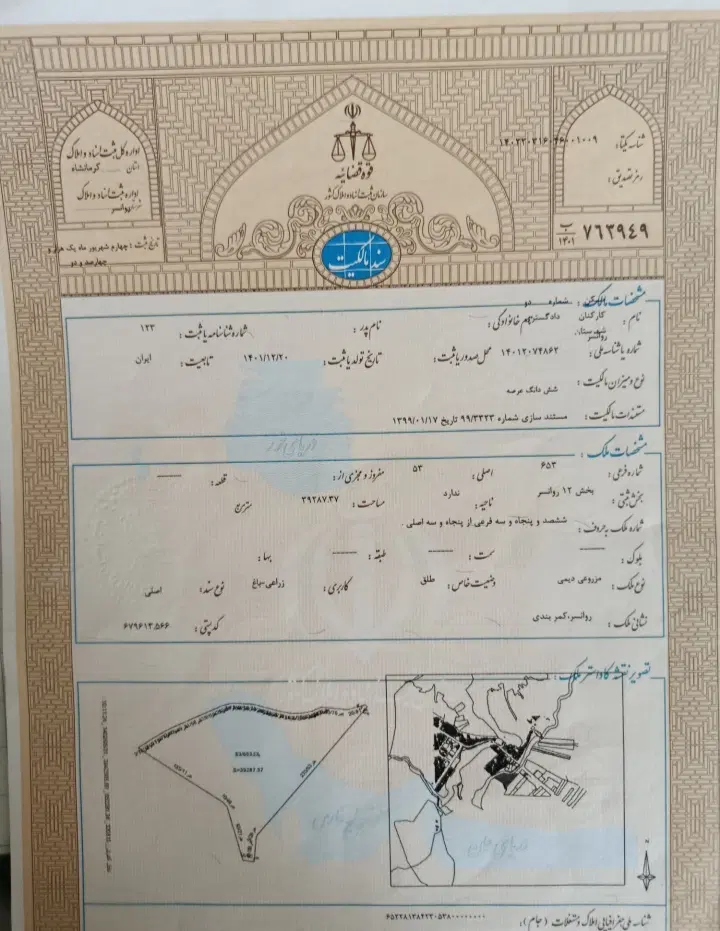 اداره کل ثبت اسناد و املاک
استان کرمانشاه
اداره ثبت اسناد و املاک
شهرستان روانسر
قوه قضائیه
سازمان ثبت اسناد و املاک کشور
شناسه یکتا:
رمز تصدیق:
۷۶۳۹۴۹ ب ۱۴۰۱
تاریخ ثبت : چهارم شهریور ماه یک هزار و
چهارصد و دو
سند مالکیت
مشخصات مالکیت :
شماره دو
نام : کارکنان دادگستری شهرستان روانسر نام خانوادگی : نام پدر : شماره شناسنامه یا ثبت : ۱۲۳
شماره یا شناسه ملی : ۱۴۰۱۲۰۷۴۸۶۲ محل صدور یا ثبت : تاریخ تولد یا ثبت : ۱۴۰۱/۱۲/۲۰ تابعیت : ایران
نوع و میزان مالکیت : شش دانگ عرصه
مستندات مالکیت : مستند سازی شماره ۹۹/۳۳۲۳ تاریخ ۱۳۹۹/۰۱/۱۷
مشخصات ملک :
شماره فرعی : ۶۵۳ اصلی : ۵۳ مفروز و مجزی از : قطعه : ــــــ
بخش ثبتی : بخش ۱۲ روانسر ناحیه : ندارد مساحت : ۳۹۲۸۷.۳۷ مترمربع
شماره ملک به حروف : ششصد و پنجاه و سه فرعی از پنجاه و سه اصلی .
بلوک : ــــــ سمت : ــــــ طبقه : ــــــ بها :
نوع ملک : مزروعی دیمی وضعیت خاص : طلق کاربری : زراعی-باغ نوع سند : اصلی
نشانی ملک : روانسر،کمر بندی کد پستی : ۶۷۹۶۱۳.۵۶۶
تصویر نقشه کاداستر ملک :
دریای خزر
خلیج فارس
دریای عمان
شناسه ملی جغرافیایی املاک و مستغلات (جام):